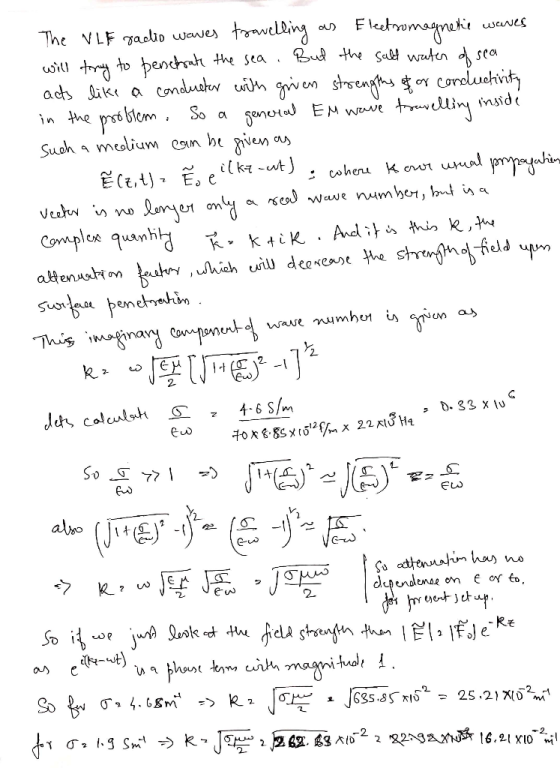 The VLF radio waves travelling as Electromagnetic waves
will try to penetrate the sea. But the salt water of sea
acts like a conductor with given strengths of or conductivity
in the problem. So a general EM wave travelling inside
Such a medium can be given as
Ẽ(z,t) = Ẽ₀ e^{i(kz-ωt)} ; where k our usual propagation
vector is no longer only a real wave number, but is a
Complex quantity k̃ = k + iK. And it is this K, the
attenuation factor, which will decrease the strength of field upon
surface penetration.
This imaginary component of wave number is given as
K = ω √(εμ/2) [√(1+(σ/εω)²) - 1]^{1/2}
lets calculate σ/εω = 4.6 S/m / (70 × 8.85 × 10^{-12} F/m × 22 × 10³ Hz) = 0.33 × 10^6
So σ/εω >> 1 => √(1+(σ/εω)²) ≃ √((σ/εω)²) = σ/εω
also (√(1+(σ/εω)²) - 1)^{1/2} ≃ (σ/εω - 1)^{1/2} ≃ √(σ/εω).
=> K = ω √(εμ/2) √(σ/εω) = √(σμω/2)
So attenuation has no
dependence on ε or ε₀.
for present setup.
So if we just look at the field strength then |Ẽ| = |Ẽ₀| e^{-Kz}
as e^{i(kz-ωt)} is a phase term with magnitude 1.
So for σ = 4.6 S m⁻¹ => K = √(σμω/2) = √635.85 × 10⁻² = 25.21 × 10⁻² m⁻¹
for σ = 1.9 S m⁻¹ => K = √(σμω/2) = √262.63 × 10⁻² = 16.21 × 10⁻² m⁻¹